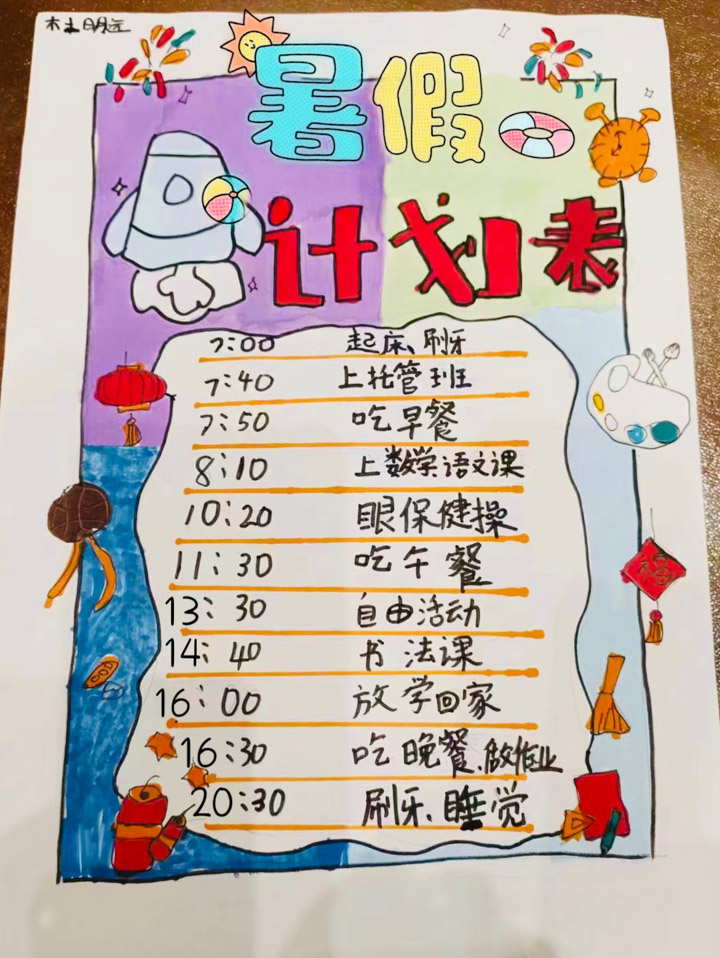 杜明远
暑假
计划表
7:00 起床、刷牙
7:40 上托管班
7:50 吃早餐
8:10 上数学语文课
10:20 眼保健操
11:30 吃午餐
13:30 自由活动
14:40 书法课
16:00 放学回家
16:30 吃晚餐、做作业
20:30 刷牙、睡觉
福